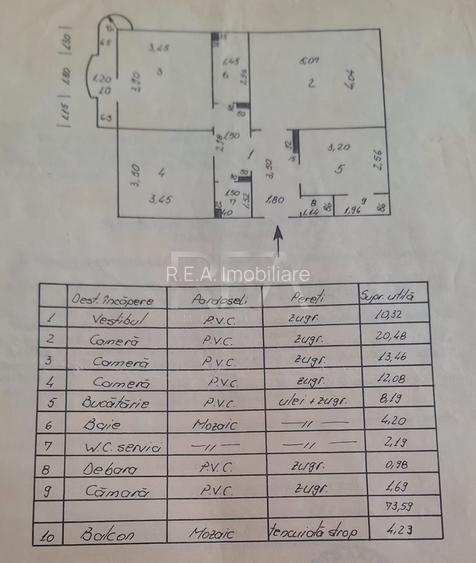 1.30
1.80
1.15
60
1.20
10
60
3,45
3
2,90
1.45
6
2,96
5,07
2
4,04
2,98
1,50
1
3,50
3,20
5
2,56
3,50
4
3,45
1,50
7
1,52
40
1.80
8
1.14
86
9
1,96
86
R.E.A. Imobiliare
Dest. încăpere Pardoseli Pereți Supr. utilă
1 Vestibul P.V.C. zugr. 10,32
2 Cameră P.V.C. zugr. 20,48
3 Cameră P.V.C. zugr. 13,46
4 Cameră P.V.C. zugr. 12,08
5 Bucătărie P.V.C. ulei + zugr. 8,19
6 Baie Mozaic — // — 4,20
7 W.C. servici — // — — // — 2,19
8 Debara P.V.C. zugr. 0,98
9 Cămară P.V.C. zugr. 1,69
73,59
10 Balcon Mozaic tencuială strop 4,23